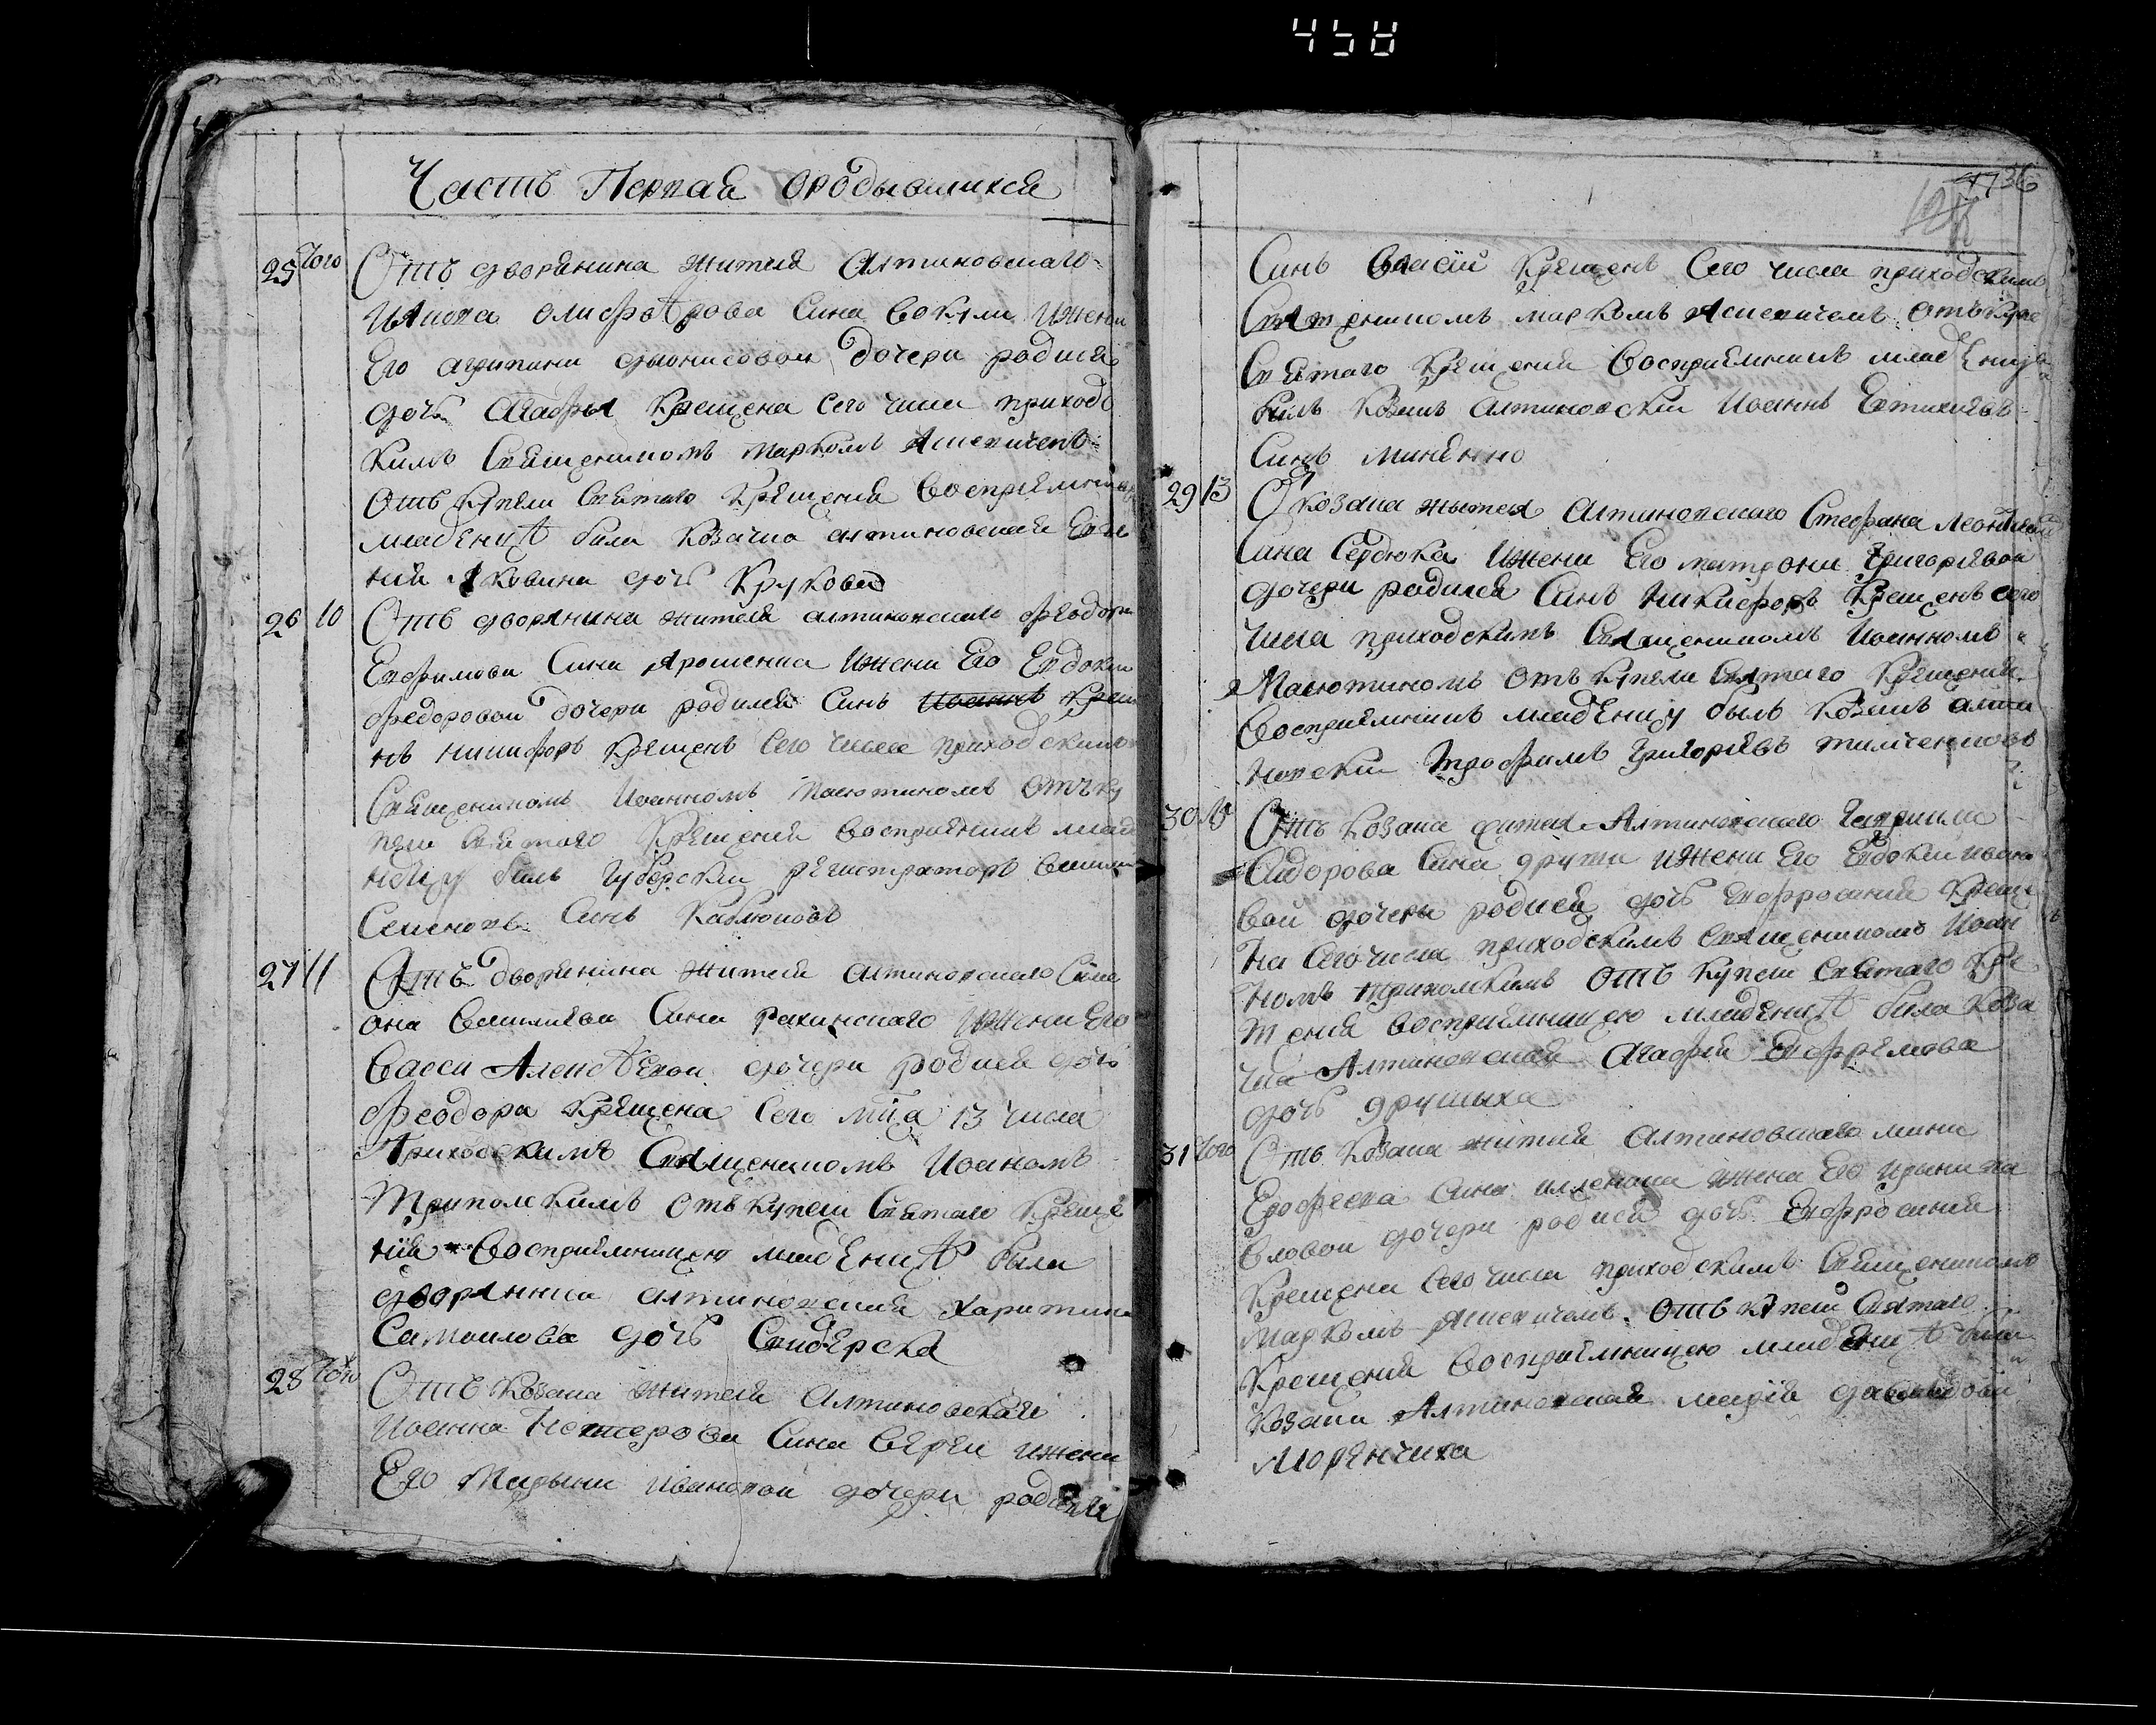 458
Часть Первая ородывшихся
25 того Отъ дворянина жителя Алтиновского
Иякова Олиферова Сина Вокули Ижени
Его агрипини дионисовои дочери родися
дочь Агафия Крещена Сего числа приходс
кимъ Священикомъ Маркомъ Ясневичемъ
Отъ Купели Святаго Крещения Восприемницею
младенцѣ била Козачка алтиновская Евге
ния Яковина дочь Крукова
26 10 Отъ дворянина жителя алтиновского Феодора
Евфимова Сина Ярошенка Ижени Его Евдокии
Федоровои дочери родился Синъ Иоаннъ Крещ
нъ никифоръ Крещенъ Сего числа приходскимъ
Священикомъ Иоанномъ Масютиномъ Отъ ку
пели Святаго Крещения Восприемникъ младе
нцу билъ Губерский регистраторъ
Семеновъ Синъ Каблюковъ
27 11 Отъ дворянина жителя алтиновского Симе
она Василиева Сина Рахинского Ижени Его
Васси Алексѣевои дочери родися дочь
Феодора Крещена Сего мца 13 числа
Приходскимъ Священикомъ Иоаномъ
Триполскимъ Отъ Купели Святаго Креще
ния Восприемницею младенцѣ была
дворянка алтиновская Харитина
Самоилова дочь Свидерска
28 того Отъ Козака жителя Алтиновская
Иоанна Нестерова Сина Ижени
Его Марыни Ивановои дочери родился
36
Синъ Власий Крещенъ Сего числа приходскимъ
Священикомъ Маркомъ Ясневичемъ Отъ Купе
Святаго Крещения Восприемникъ младенцу
билъ Козакъ алтиновский Иоаннъ Евтихиевъ
Синъ Миненко
29 13 От козака жытеля Алтиновского Стефана Леонтиева
Сина Сердюка Ижени Его матрони Григориевои
дочери родился Синъ Никифоръ Крещенъ сего
числа приходскимъ Священикомъ Иоанномъ
Масютиномъ Отъ Купели Святаго Крещения
Восприемникъ младенцу былъ Козакъ алти
новский Трофимъ Григориевъ Тимченковъ
30 Отъ Козака жителя Алтиновского Гаврыила
Сидорова Сина друти ижени Его Евдокии ивано
вои дочери родися дочь Евфросиния Креще
на Сего числа приходскимъ Священикомъ Иоан
номъ Триполскимъ Отъ Купели Святаго Кре
щения восприемницею младенцѣ била Коза
чка Алтиновская Агафия Евфремова
дочь друтыха
31 того Отъ Козака жителя Алтиновского мини
Ерофеева Сина ижени Его Ирыни па
вловои дочери родися дочь Евфросиния
Крещена Сего числа приходскимъ Священикомъ
Маркомъ Ясневичемъ Отъ Купели Святаго
Крещения Восприемницею младенцѣ била
Козачка Алтиновская мария давидова